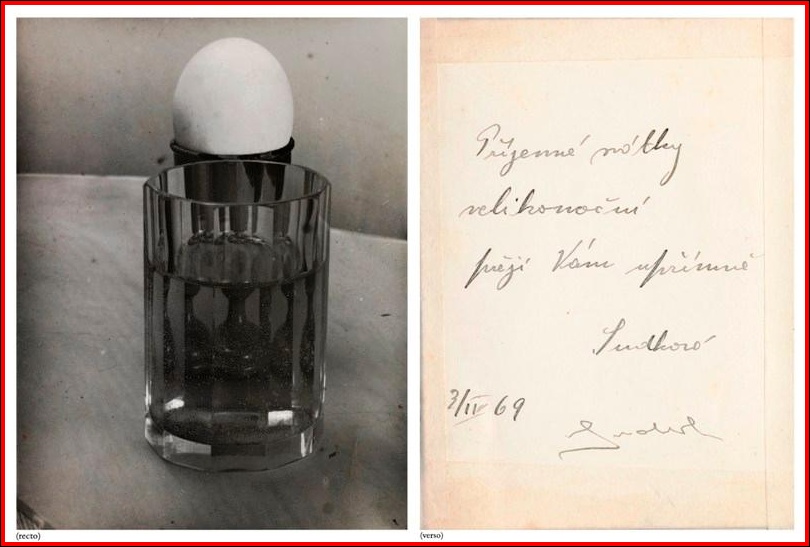 Příjemné svátky
velikonoční
přejí Vám upřímně
Sudkovi
3/IV 69
Sudek
(recto)
(verso)